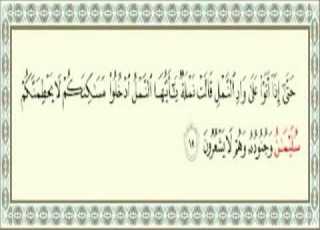 حَتَّىٰ إِذَا أَتَوْا عَلَىٰ وَادِ النَّمْلِ قَالَتْ نَمْلَةٌ يَا أَيُّهَا النَّمْلُ ادْخُلُوا مَسَاكِنَكُمْ لَا يَحْطِمَنَّكُمْ
سُلَيْمَانُ وَجُنُودُهُ وَهُمْ لَا يَشْعُرُونَ ١٨